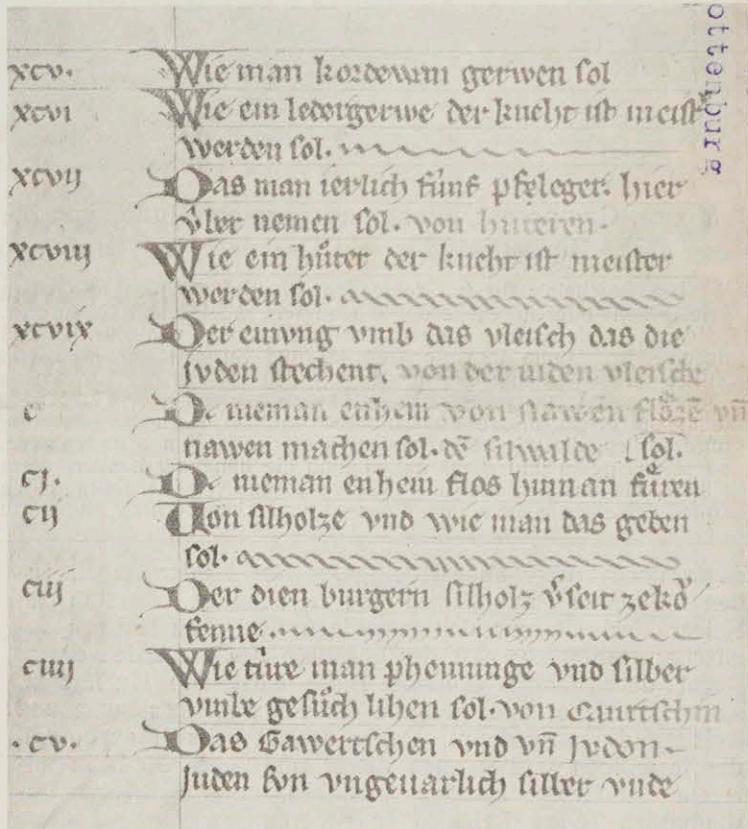 ottenburg
xcv. Wie man kordewan gerwen sol
xcvi Wie ein ledergerwe der kneht ist meist
werden sol.
xcvij Das man ierlich fúnf pfleger. hier
vber nemen sol. von hůteren.
xcviij Wie ein hůter der kneht ist meister
werden sol.
xcvix Der einvng vmb das vleisch das die
jvden stechent. von der iuden vleische
c Dc nieman enhein von nawen vn̄
nawen machen sol. silwalde sol.
cj. Dc nieman enhein flos hinnan fůren
cij Von silholze vnd wie man das geben
sol.
ciij Der dien burgern silholz v̄seit zekǒ
fenne.
ciiij Wie túre man phenninge vnd silber
vmbe gesůch lihen sol. von
.cv. Das Gawertschen vnd vn̄ Jvdon
Juden von vngeuarlich silber vnde